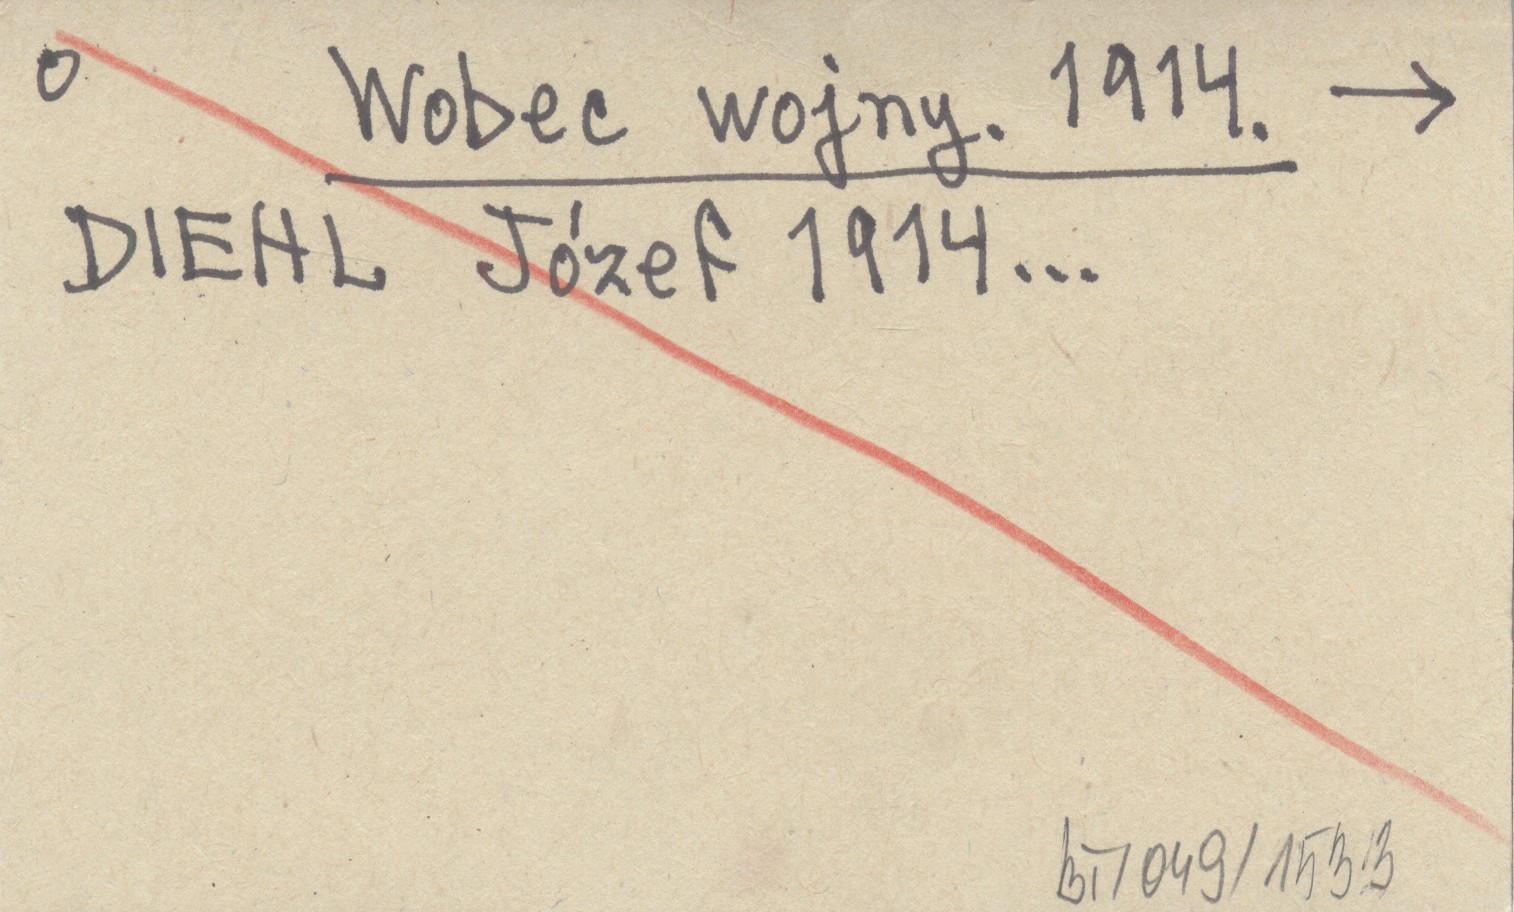 o Wobec wojny. 1914. →
DIEHL Józef 1914...
BT/049/1533